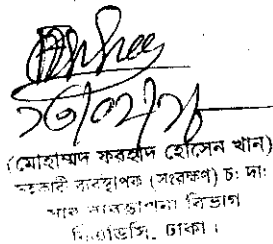 (মোহাম্মদ ফরহাদ হোসেন খান)
সহকারী ব্যবস্থাপক (সংরক্ষণ) চ: দা:
সার ব্যবস্থাপনা বিভাগ
বিএডিসি, ঢাকা।